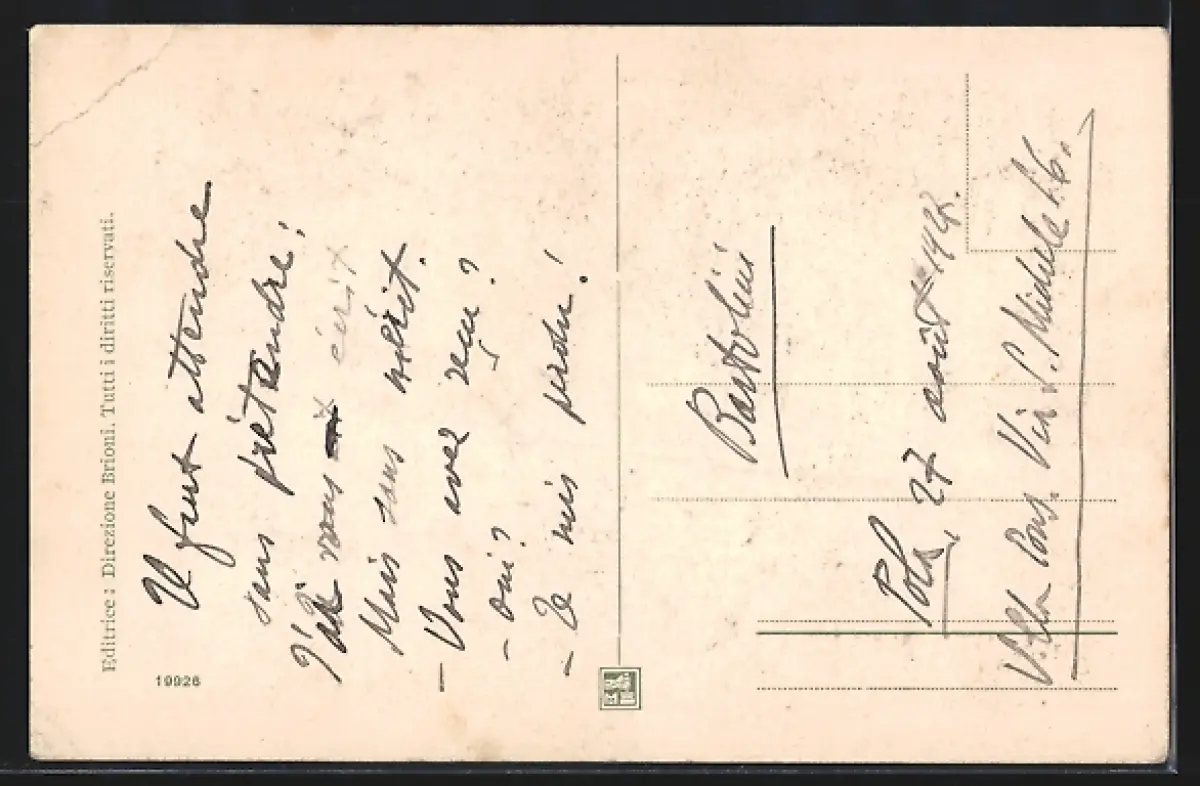 Editrice: Direzione Brioni. Tutti i diritti riservati.
19926
Il faut attendre
sans prétendre!
J'ai vous écrit
Mais sans mérit.
- Vous avez reçu?
- oui?
- Je suis perdu!
Bartolini
Pola, 27 août 192
Villa Via S. Michele 56.